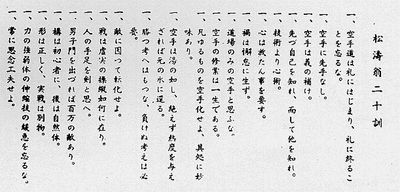 松濤翁二十訓
一、空手道は礼にはじまり、礼に終るこ
とを忘るな。
一、空手に先手なし。
一、空手は義の補け。
一、先づ自己を知れ、而して他を知れ。
一、技術より心術。
一、心は放たん事を要す。
一、禍は懈怠に生ず。
一、道場のみの空手と思ふな。
一、空手の修業は一生である。
一、凡ゆるものを空手化せよ、其処に妙
味あり。
一、空手は湯の如し、絶えず熱度を与え
ざれば元の水に還る。
一、勝つ考へはもつな、負けぬ考えは必
要。
一、敵に因って転化せよ。
一、戦は虚実の操縦如何に在り。
一、人の手足を剣と思へ。
一、男子門を出づれば百万の敵あり。
一、構は初心者に、後は自然体。
一、形は正しく、実戦は別物。
一、力の強弱体の伸縮技の緩急を忘るな。
一、常に思念工夫せよ。